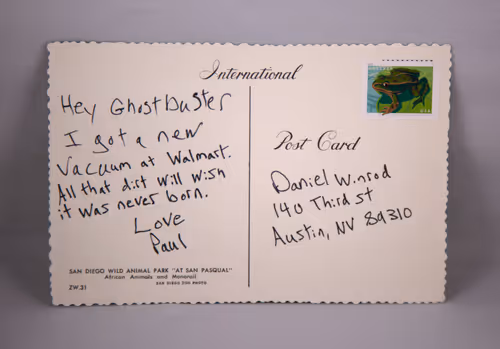 International
Hey Ghostbuster
I got a new
vacuum at Walmart.
All that dirt will wish
it was never born.
Love
Paul
Post Card
Daniel Winrod
140 Third St
Austin, NV 89310
SAN DIEGO WILD ANIMAL PARK "AT SAN PASQUAL"
African Animals and Monorail
SAN DIEGO ZOO PHOTO
ZW.31